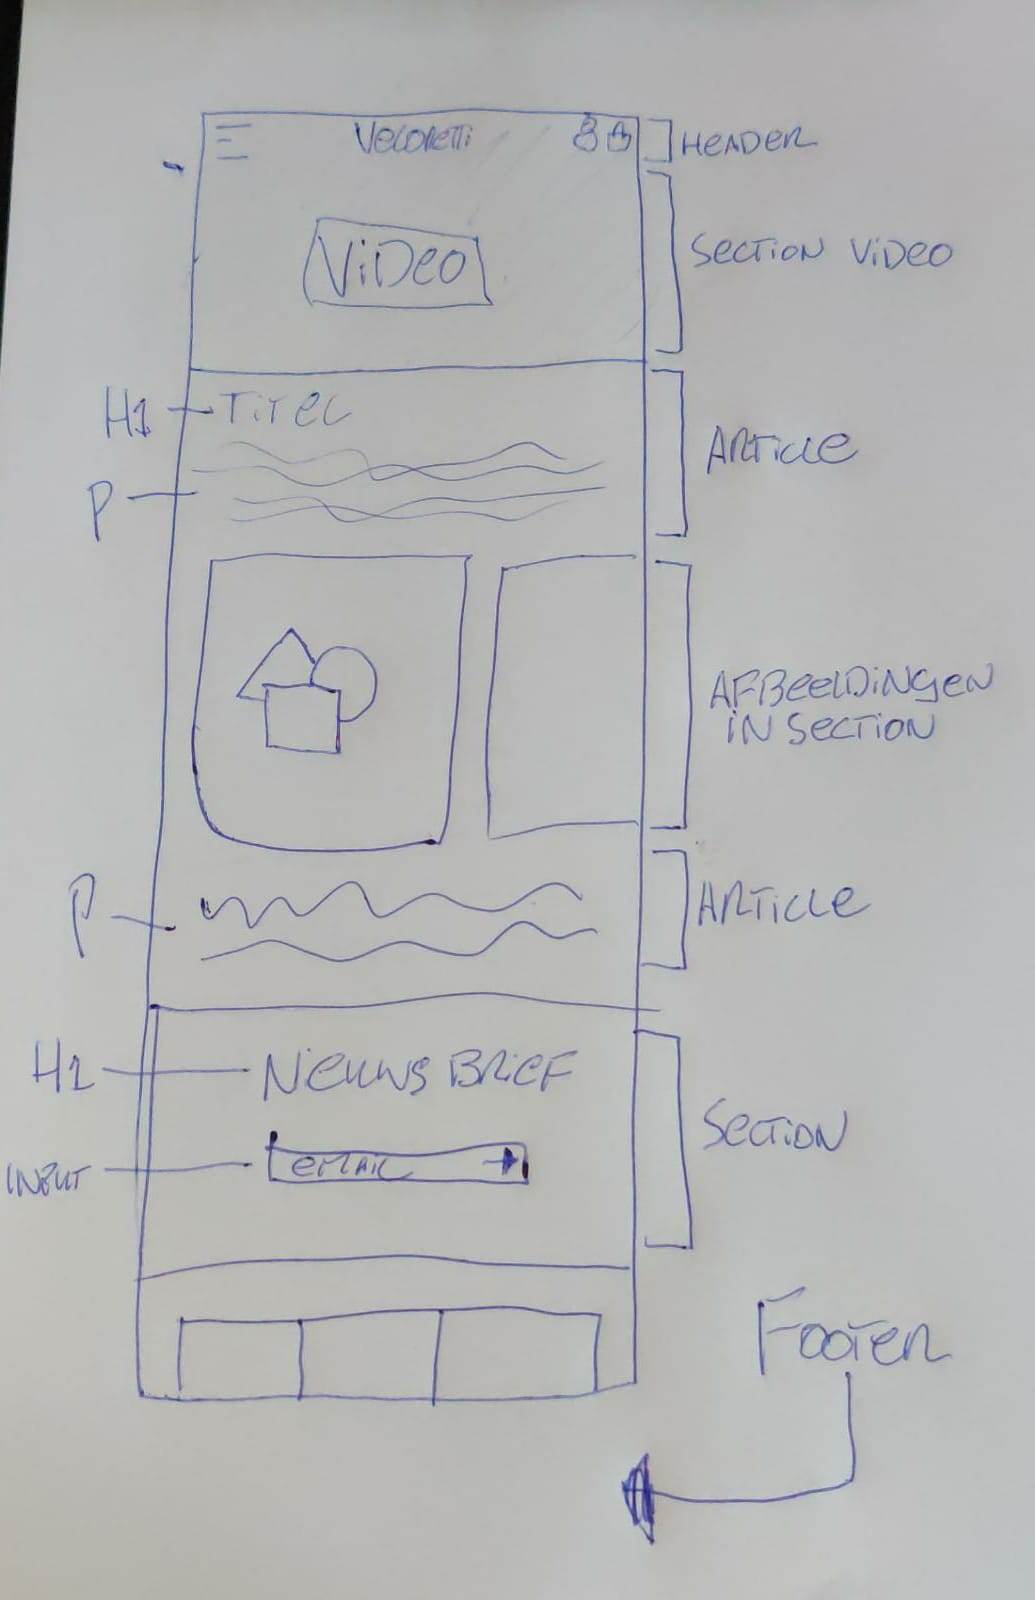 Veloretti
HEADER
ViDeo
Section ViDeo
H1
Titel
P
Article
AFBeelDiNgeN
iN Section
P
Article
H1
Nieuws Brief
Section
INPUT
eMAiL
Footer